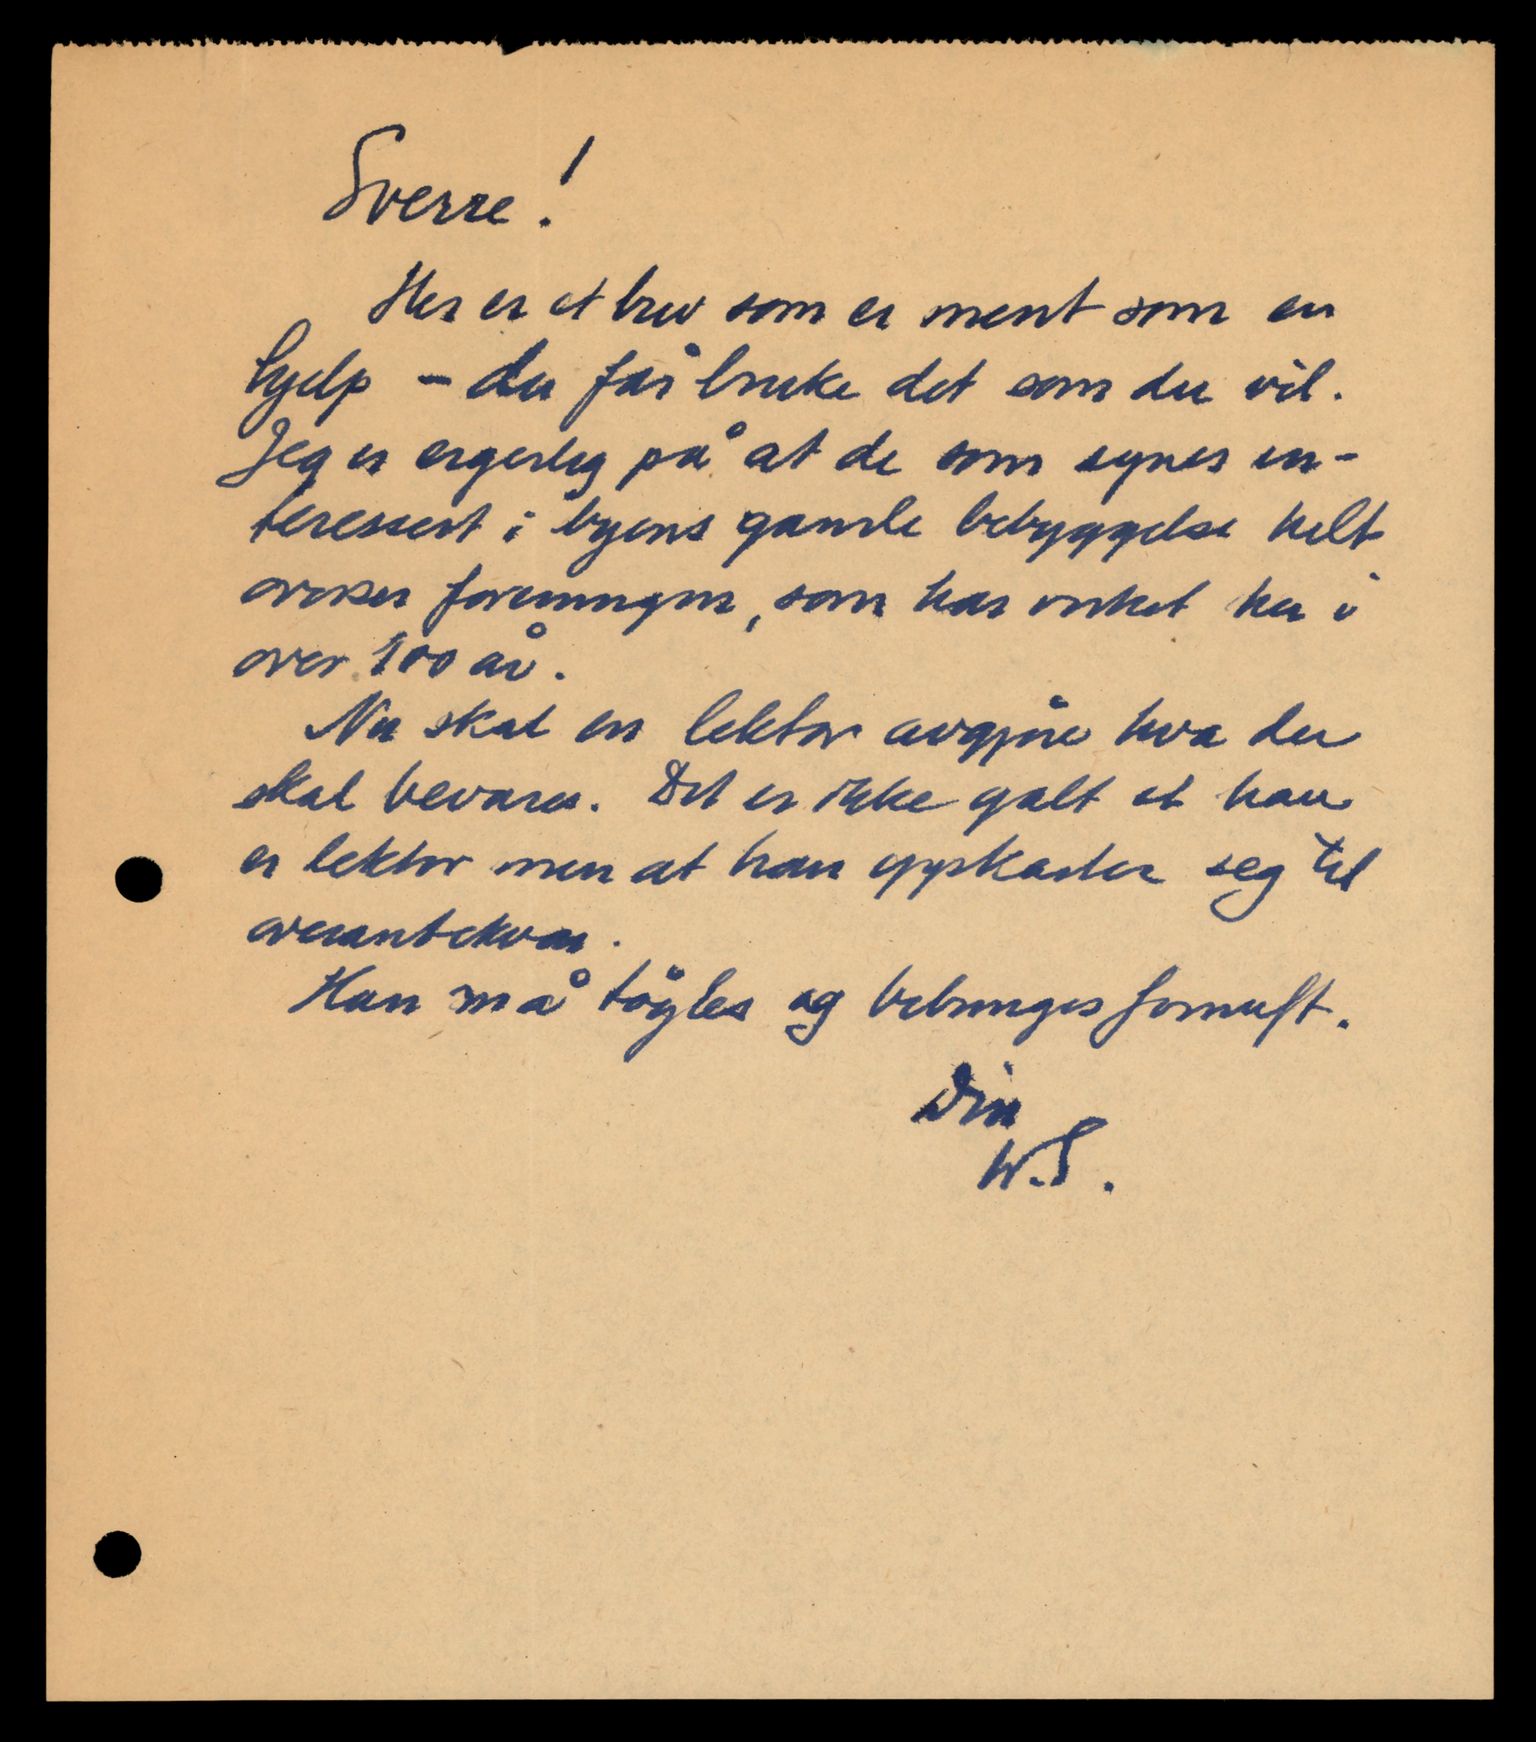 Sverre!
Her er et brev som er ment som en
hjelp - du får bruke det som du vil.
Jeg er ergerlig på at de som synes in-
teressert i byens gamle bebyggelse helt
overser foreningen, som har virket her i
over 100 år.
Nu skal en lektor avgjøre hva der
skal bevares. Det er ikke galt at han
er lektor men at han oppkaster seg til
overantikvar.
Han må tøyles og bebringes fornuft.
Din
W.S.